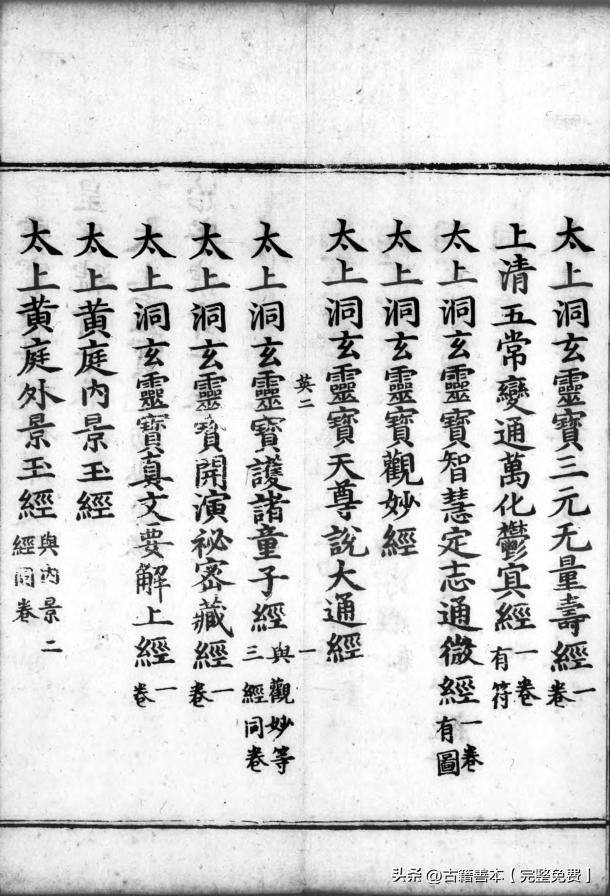 太上洞玄靈寶三元无量壽經一卷
上清五常變通萬化鬱㝠經一卷有符
太上洞玄靈寶智慧定志通微經一卷有圖
太上洞玄靈寶觀妙經
太上洞玄靈寶天尊說大通經
英二
太上洞玄靈寶護諸童子經一與觀妙等三經同卷
太上洞玄靈寶開演祕密藏經一卷
太上洞玄靈寶真文要解上經一卷
太上黃庭內景玉經
太上黃庭外景玉經與內景二經同卷
头条 @古籍善本【完整免费】